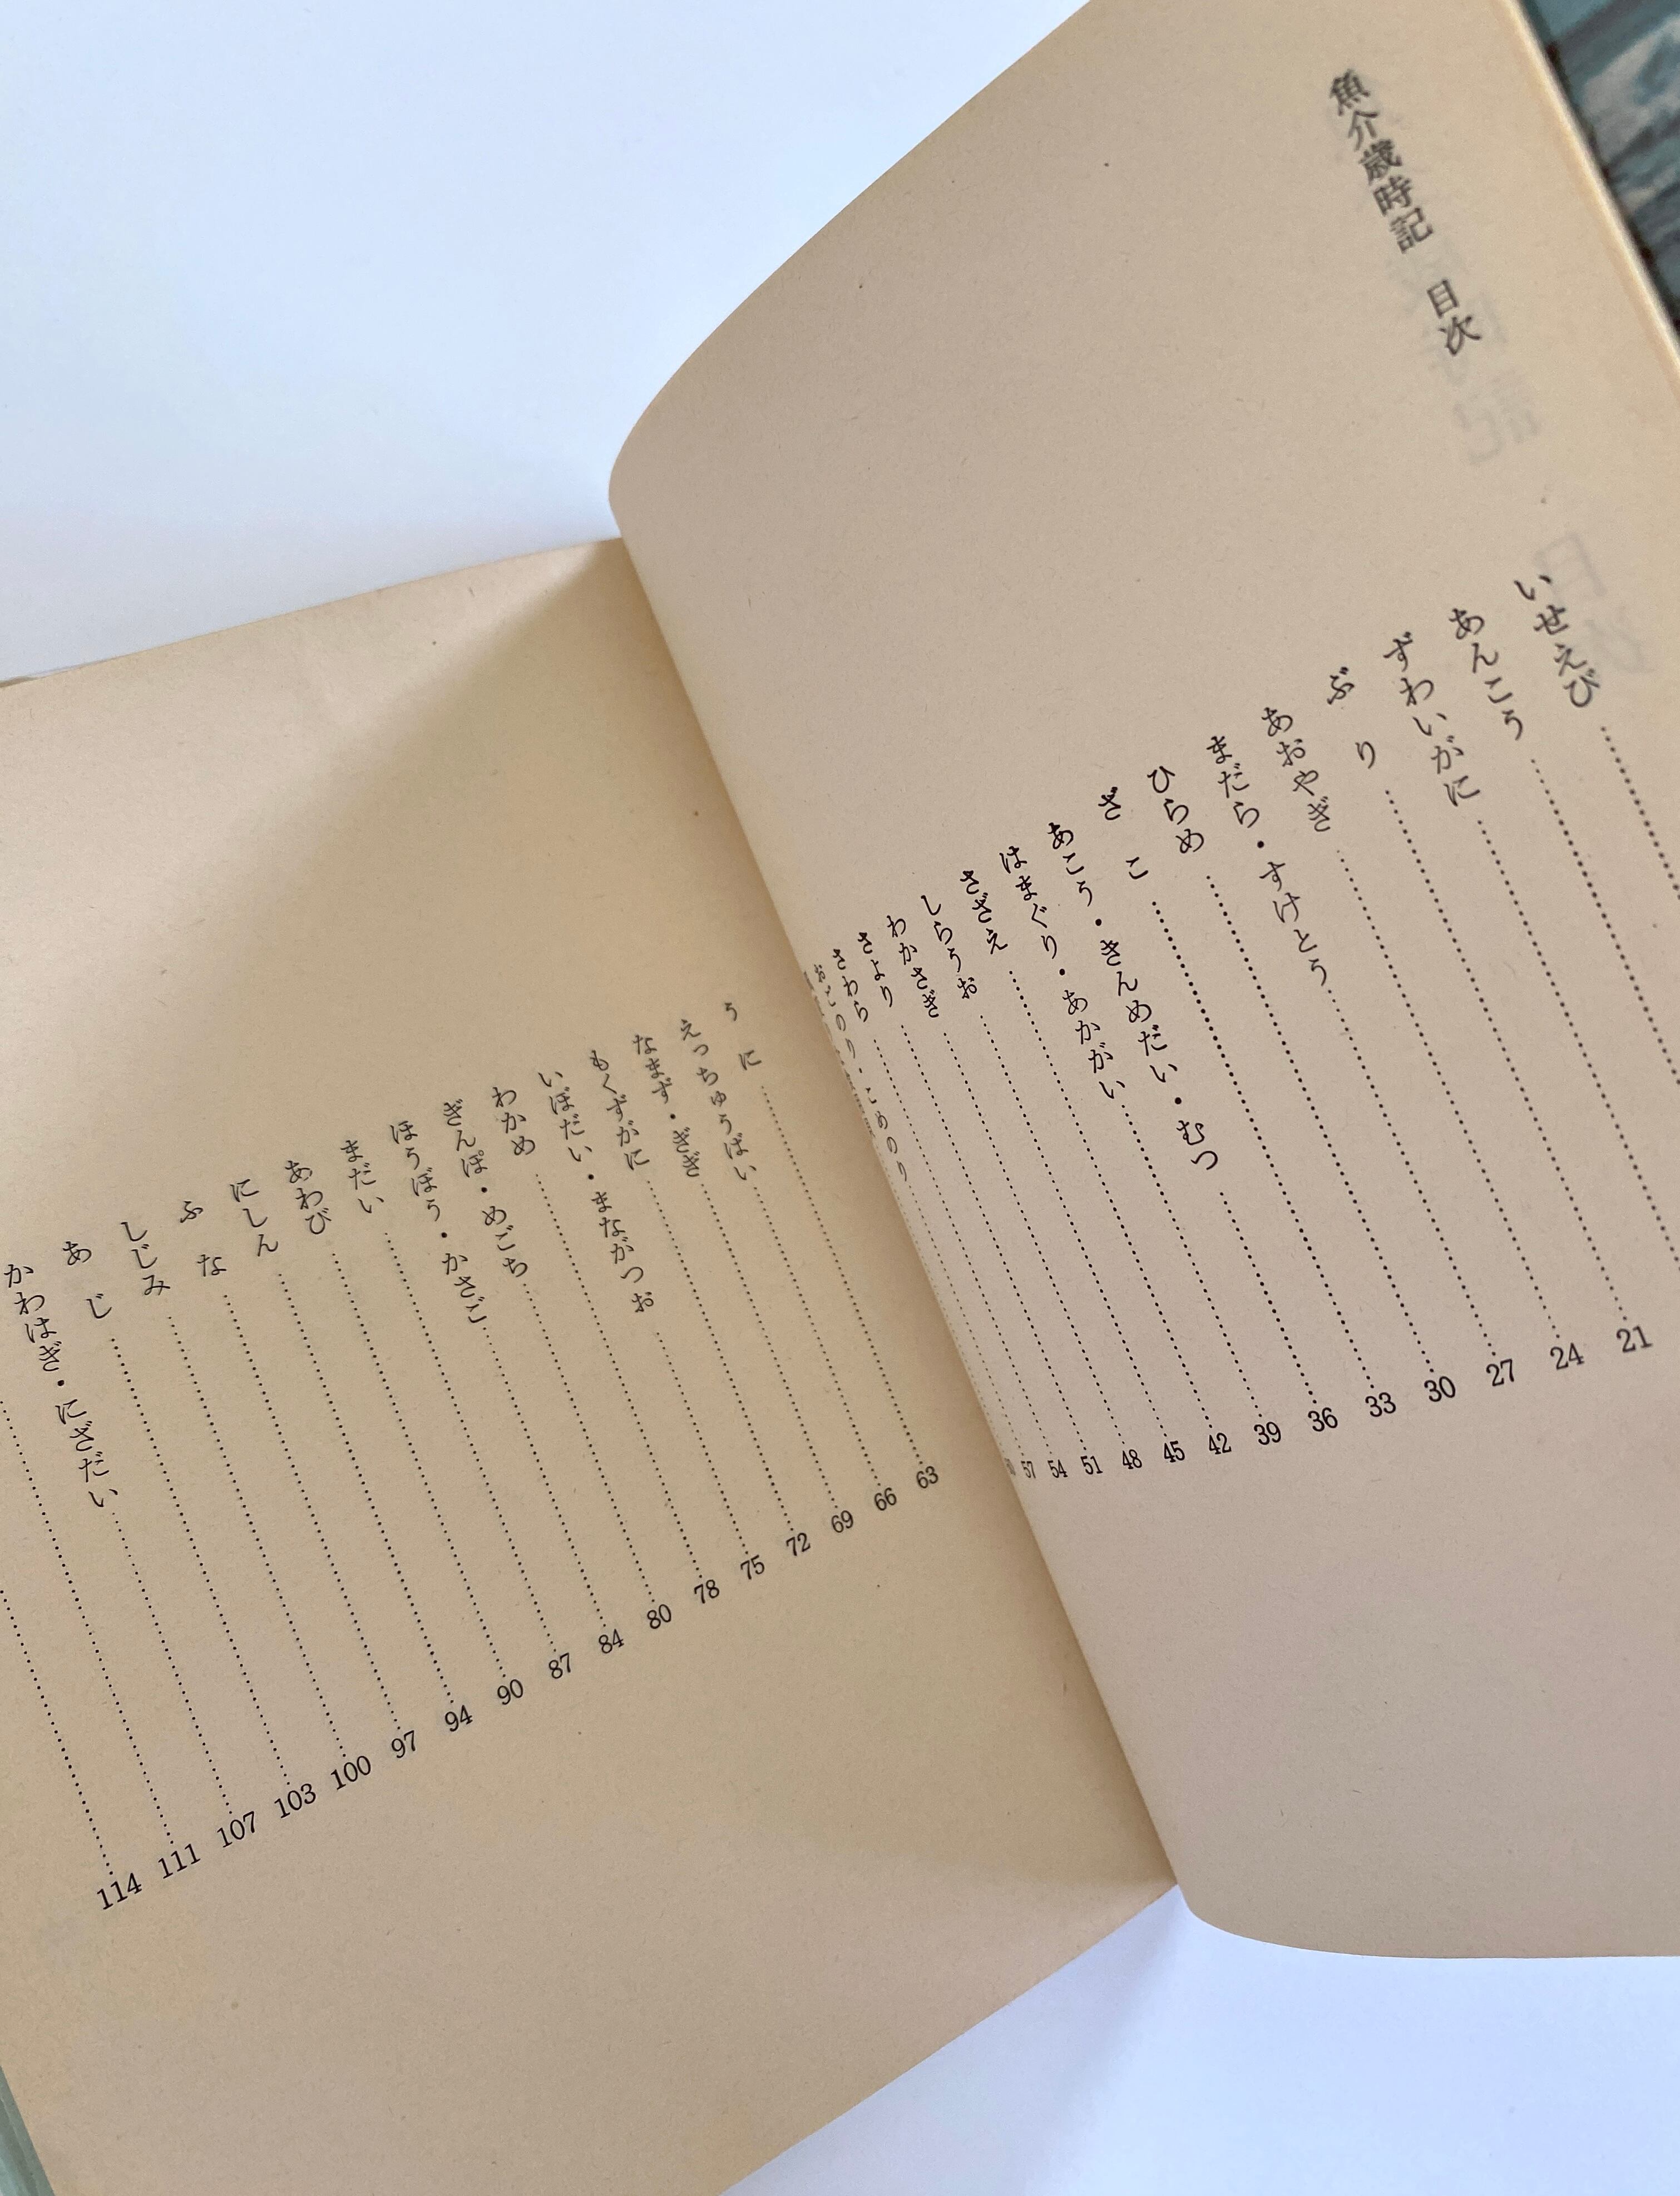 魚介歳時記 目次
いせえび
あんこう
ずわいがに 21
ぶり 24
あおやぎ 27
まだら・すけとう 30
ひらめ 33
ざこ 36
あこう・きんめだい・むつ 39
はまぐり・あかがい 42
さざえ 45
しらうお 48
わかさぎ 51
さより 54
さわら 57
こめのり
うに 63
えっちゅうばい 66
なまず・ぎぎ 69
もくずがに 72
いぼだい・まながつお 75
わかめ 78
ぎんぽ・めごち 80
ほうぼう・かさご 84
まだい 87
あわび 90
にしん 94
ふな 97
しじみ 100
あじ 103
かわはぎ・にざだい 107
111
114